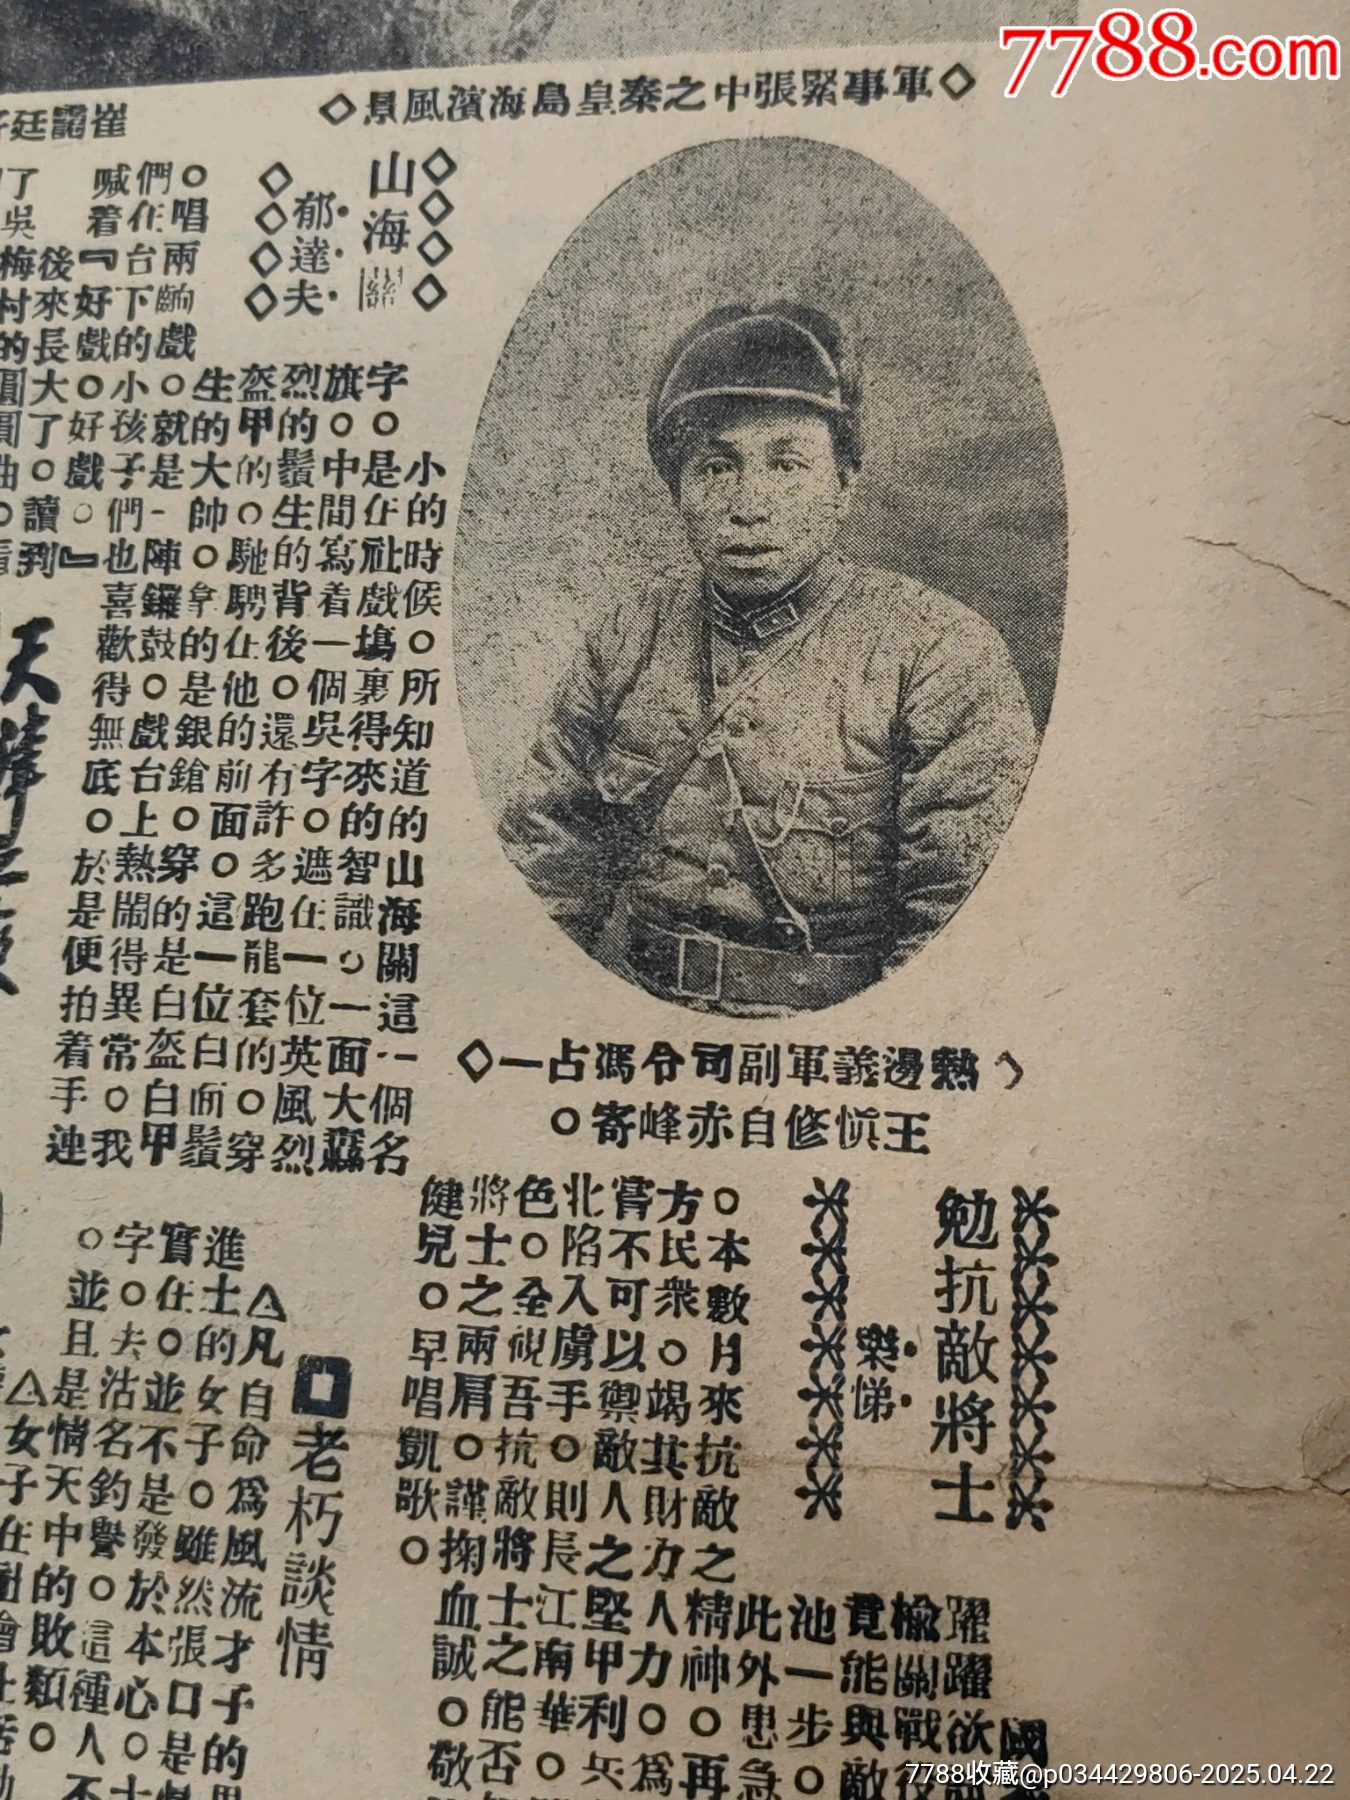 ◇軍事緊張中之秦皇島海濱風景◇
崔靄廷
山海關
郁達夫
小的時候。所知道的山海關這一個名
字。是在社戲塲裏得來的智識。一面大蘇
旗。中間寫着一個吳字。遮在一位英風烈
烈的鬚生的背後。還有許多跑龍套的。穿
盔甲的。馳騁在他的前面。這一位白面鬚
生的大帥。拿的是銀鎗。穿的是白盔白甲
。唱兩齣戲。就是一陣鑼鼓。戲台上熱鬧得異常。我
們在台下的小孩子們也喜歡得無底。於是便拍着手連
喊着『好戲。好戲。』
後來長大了。讀到
了吳梅村的圓圓曲。
熱邊義軍副司令馮占一◇
王愼修自赤峰寄。
勉抗敵將士
樂悌
國
躍躍欲
榆關戰役
竟能與敵
池一步。
此外患急
。本數月來抗敵之精神。再
方民衆。竭其財力人力。爲
膏不可以禦敵人之堅甲利兵
北陷入虜手。則長江南華。
色。全視吾抗敵將士之能否
將士之兩肩。謹掬血誠。敬
健兒。早唱凱歌。
老朽談情
△凡自命爲風流才子的
進士的女子。雖然張口是
實在。並不是發於本心。
字。夫沽名釣譽的這種人
並且是情天中的敗類。
△女子在
7788.com
7788收藏@p034429806-2025.04.22